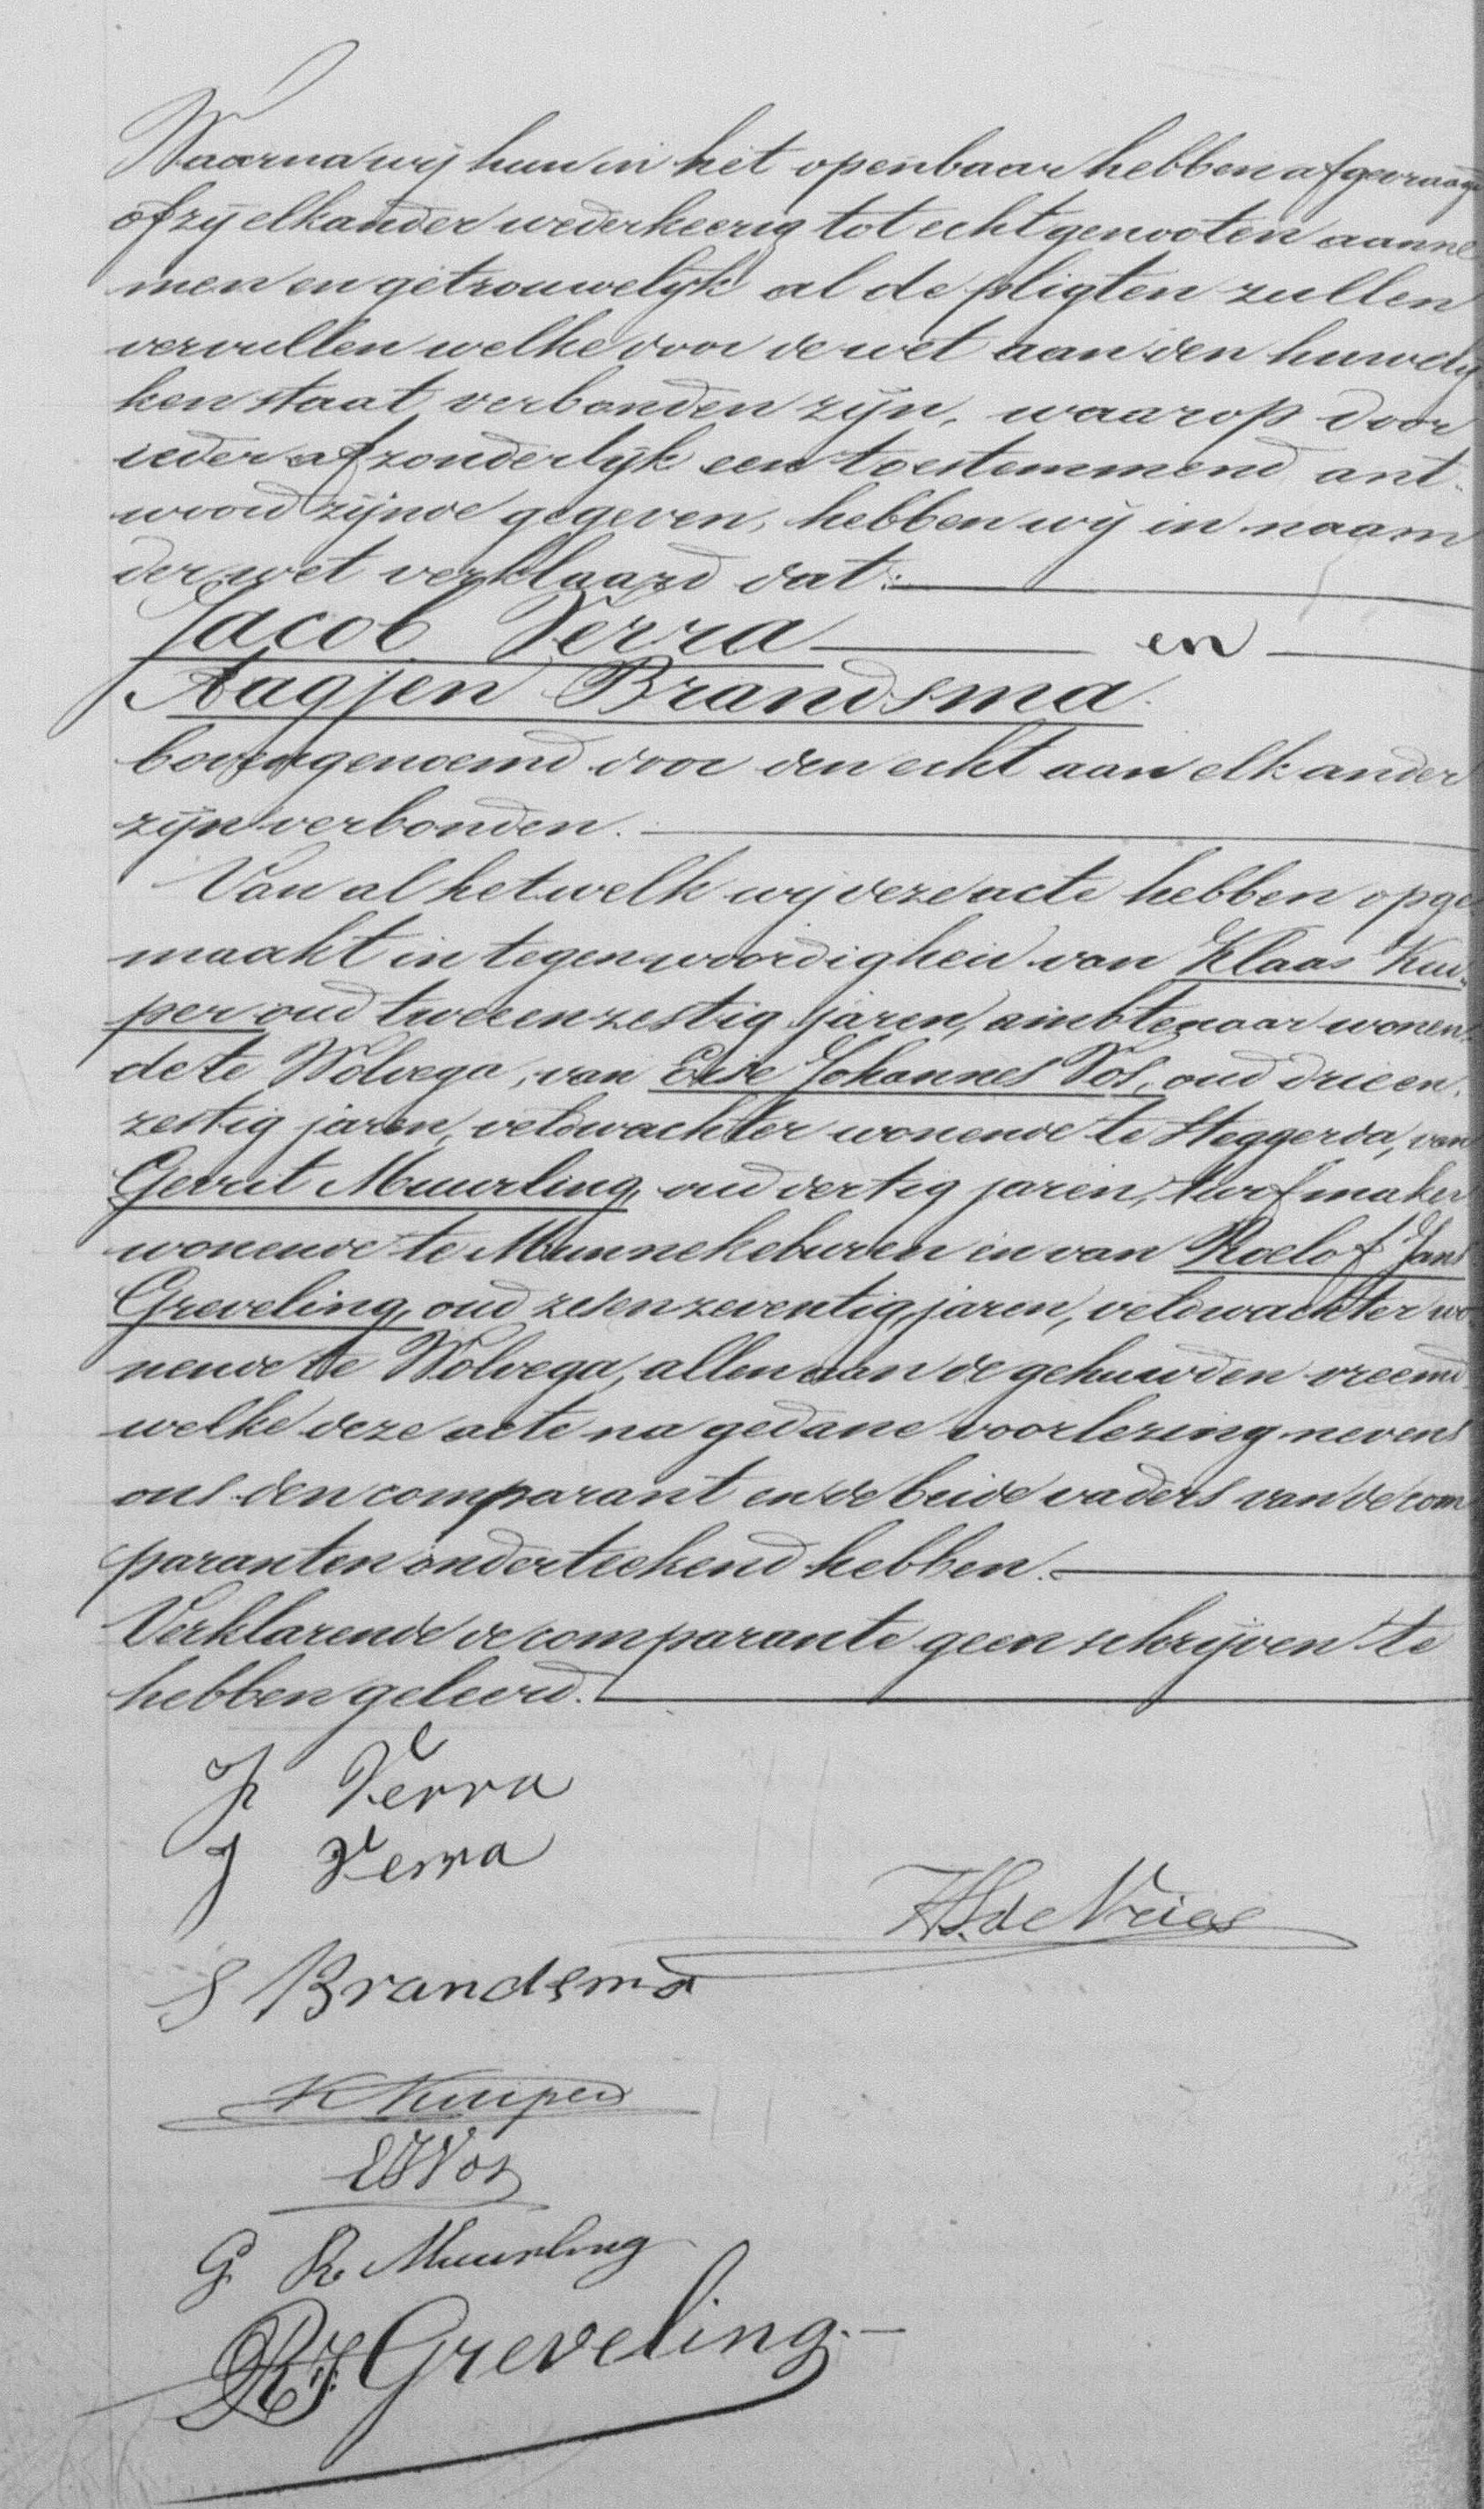 Waarna wij hun in het openbaar hebben afgevraagd
of zij elkander wederkeerig tot echtgenooten aanne
men en getrouwelijk al de pligten zullen
vervullen welke door de wet aan den huwely
ken staat verbonden zijn, waarop door
ieder afzonderlijk een toestemmend ant-
woord zijnde gegeven, hebben wij in naam
der wet verklaard dat:
Jacob Verra en
Aagjen Brandsma.
bovengenoemd door den echt aan elkander
zijn verbonden.
Van al hetwelk wij deze acte hebben opge
maakt in tegenwoordigheid van Klaas Kui-
per oud tweeenzestig jaren, ambtenaar wonen-
de te Wolvega, van Eise Johannes Vos, oud drieen-
zestig jaren, veldwachter wonende te Steggerda, van
Gerrit Muurling, oud dertig jaren, turfmaker
wonende te Munnekeburen en van Roelof Jans
Greveling, oud zesenzeventig jaren, veldwachter wo
nende te Wolvega, allen aan de gehuwden vreemd
welke deze acte na gedane voorlezing nevens
ons den comparant en de beide vaders van de com
paranten onderteekend hebben.
Verklarende de comparante geen schrijven te
hebben geleerd.
J Verra
J Verra
H.S. de Vries
S Brandsma
K Kuiper
EJ Vos
G R Muurling
R.J. Greveling.